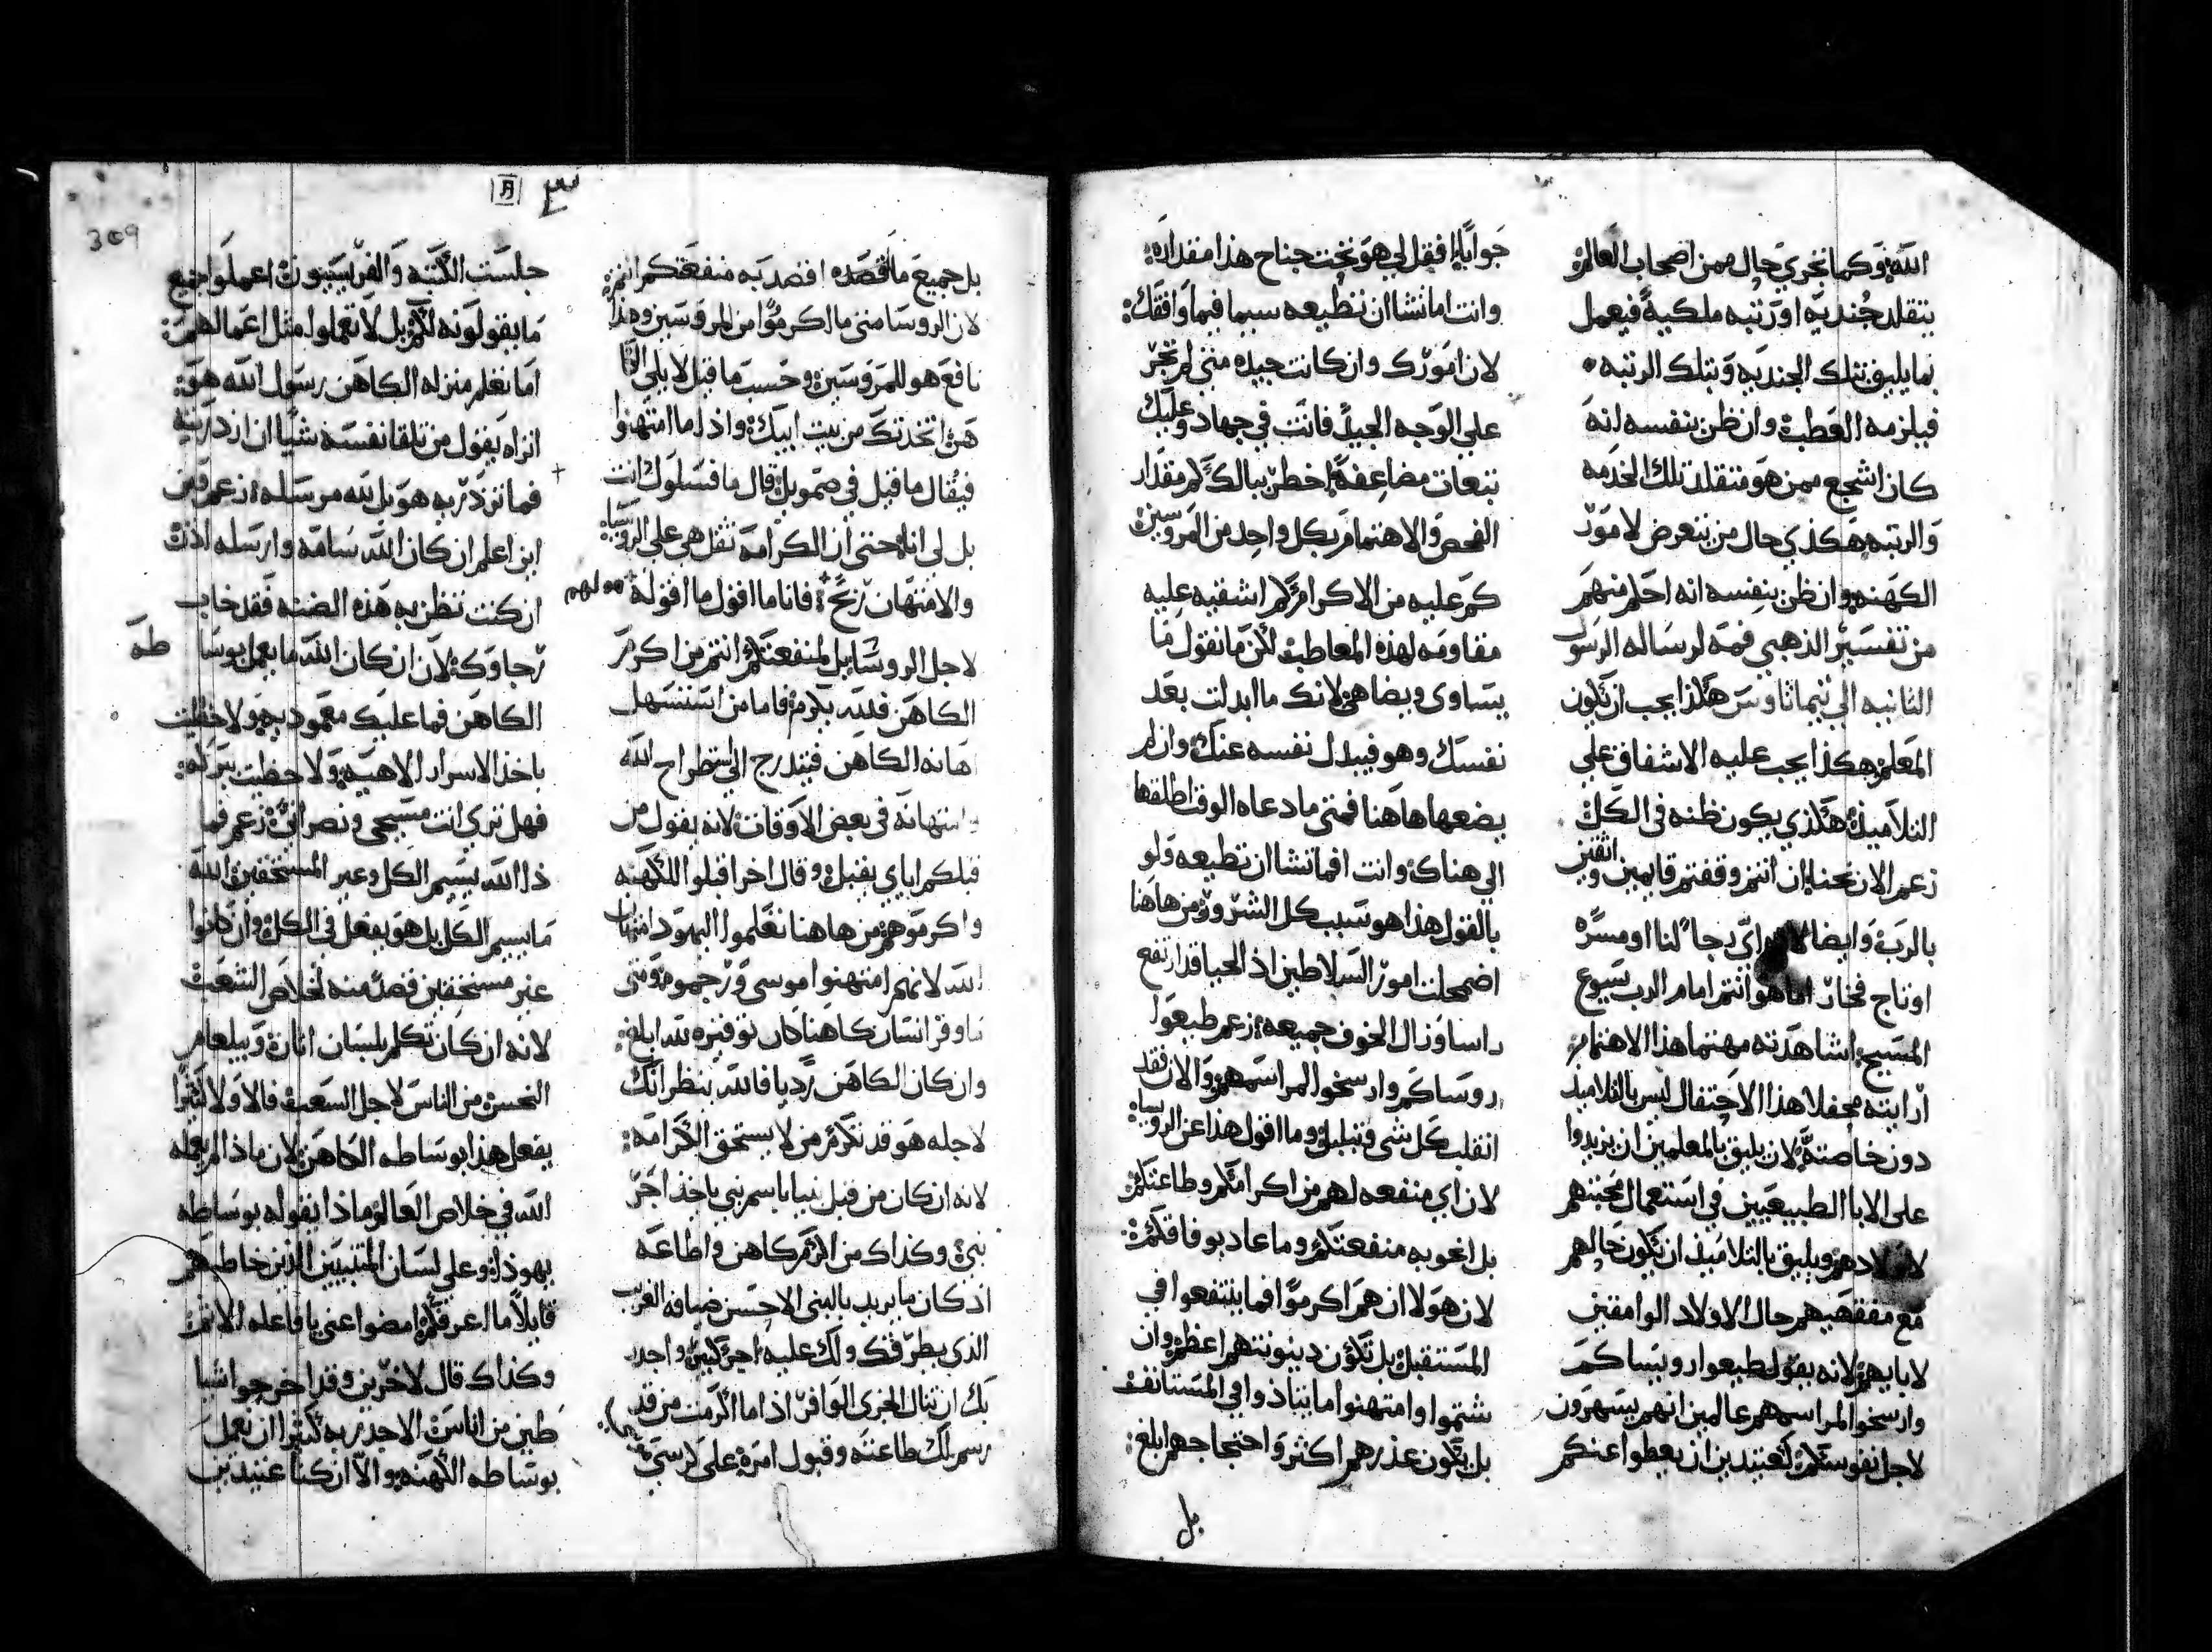 الله وكما تجري حال ممن اصحاب العالم
يتقلد جنديه او رتبه ملكيه فيعمل
بما يليق بتلك الجنديه وبتلك الرتبه
فيلزمه العطب وان ظن بنفسه انه
كان اشجع ممن هو متقلد تلك الخدمه
والرتبه هكذي حال من يتعرض لامور
الكهنه وان ظن بنفسه انه احلم منهم
من تفسير الذهبي فمه لرساله الرسول
الثانيه الي تيماثاوس هكذا يجب ان يكون
المعلم هكذا يجب عليه الاشفاق علي
التلاميذ هكذي يكون ظنه في الكل
زعم الان نحيا ان انتم وقفتم قايمين واثقين
بالرب وايضا اي رجا لنا او مسره
او تاج فخار اما هو انتم امام الرب يسوع
المسيح اشاهدته مهتما هذا الاهتمام
ارايته محفلا هذا الاحتفال ليس بالتلاميذ
دون خاصته لان يليق بالمعلمين ان يزيدوا
علي الابا الطبيعيين في استعمال محبتهم
لاولادهم ويليق بالتلاميذ ان يكون حالهم
مع مفقهيهم حال الاولاد الوامقين
لابايهم لانه يقول طيعوا روييساكم
وارسخوا لمراسمهم عالمين انهم يسهرون
لاجل نفوسكم كعتيدين ان يعطوا عنكم
جوابا افقل لي هو تحت جناح هذا مقداره
وانت اما تشا ان تطيعه سيما فيما وافقك
لان امورك وان كانت جيده متي لم تجر
علي الوجه الجيد فانت في جهاد وعليك
تبعات مضاعفه اخطر ببالك كم مقدار
الفحص والاهتمام بكل واحد من المروسين
كم عليه من الاكرام كم اشقيه عليه
مقاومه لهذه المعاطب لكن ما نقول ما
يتساوي ويضاهي لانك ما ابدلت بعد
نفسك وهو فيبدل نفسه عنك وان لم
يضعها هاهنا فمتي ما دعاه الوقت اطلقها
الي هناك وانت افما تشا ان تطيعه ولو
بالقول هذا هو سبب كل الشرور من هاهنا
اضمحلت امور السلاطين اذ الحيا قد ارتفع
راسا وزال الخوف جميعه زعم طيعوا
روساكم وارسخوا لمراسمهم والان فقد
انقلب كل شي وتبلبل وما اقول هذا عن الرويسا
لان اي منفعه لهم من اكرامكم وطاعتكم
بل نحو به منفعتكم وما عاد بوفاقكم
لان هولا ان هم اكرموا فما ينتفعوا في
المستقبل بل تكون دينونتهم اعظم وان
شتموا وامتهنوا اما يتاذوا في المستانف
بل يكون عذرهم اكثر واحتجاجهم ابلغ
بل
309
بل جميع ما اقصده اقصد به منفعتكم انتم
لان الروسا متي ما اكرموا من المروسين وهذا
نافع هو للمروسين وحسب ما قيل لايلي
هي اتخذتك من بيت ابيك واذا ما امتهنوا
فيقال ما قيل في صمويل قال ما فسلوك انت
بل لي انا حتي ان الكرامه ثقل هي علي الرويسا
والامتهان ربح فانا ما اقول ما اقوله
لاجل الروسا بل لمنفعتكم انتم من اكرم
الكاهن فلله يكرم فاما من استسهل
اهانه الكاهن فيتدرج الي استطراح الله
وامتهانه في بعض الاوقات لانه يقول من
قبلكم اياي يقبل وقال اخر اقبلوا الكهنه
واكرموهم من هاهنا تعلموا اليهود امتهان
الله لانهم امتهنوا موسي ورجموه ومتي
ما وقر انسان كاهنا كان توقيره لله ابلغ
وان كان الكاهن رديا فالله ينظر انك
لاجله هو قد تكرم من لا يستحق الكرامه
لانه ان كان من قبل نبيا باسم نبي ياخذ اجر
نبي وكذاك من اكرم كاهن واطاعه
اذ كان ما يريد بالبني الاحسن ضيافه الغريب
الذي يطرقك ولك عليه اجر كبير واجدر
بك ان تنال الجزي الوافر اذا ما اكرمت من قد
رسم لك طاعته وقبول امره علي كرسي
جلست الكتبه والفريسييون اعملوا جميع
ما يقولونه لكم بل لا تعملوا مثل اعمالهم
اما تعلم منزله الكاهن رسول الله هو
اتراه يقول من تلقا نفسه شيا ان ازدريته
فما تزدر به هو بل بالله مرسله زعم فمن
اين اعلم ان كان الله سامه وارسله اذن
ان كنت تظن به هذه الضنه فقد خاب
رجاوك لان ان كان الله ما يعمل بوسا طه
الكاهن فما عليك معموديه ولا حظيت
باخذ الاسرار الالاهيه ولا حظيت ببركه
فهل تري انت مسيحي ونصراني زعم فما
ذا الله يسيم الكل وغير المستحقين الله
ما يسيم الكل بل هو يفعل في الكل وان كانوا
غير مستحقين قصد منه لخلاص الشعب
لانه ان كان تكلم بلسان اتان وببلعام
النجس من الناس لاجل الشعب فالاولا كثيرا
يفعل هذا بوساطه الكاهن لان ماذا لم يعمله
الله في خلاص العالم وماذا يقوله بوساطه
يهوذا وعلي لسان المتنبيين الذين خاطبهم
قايلا ما اعرفكم امضوا عني يا فاعله الاثم
وكذاك قال لاخرين وقد اخرجوا شيا
طين من اناس الاجدر به كثيرا ان يعمل
بوساطه الكهنه والا ان كنا عتيدين